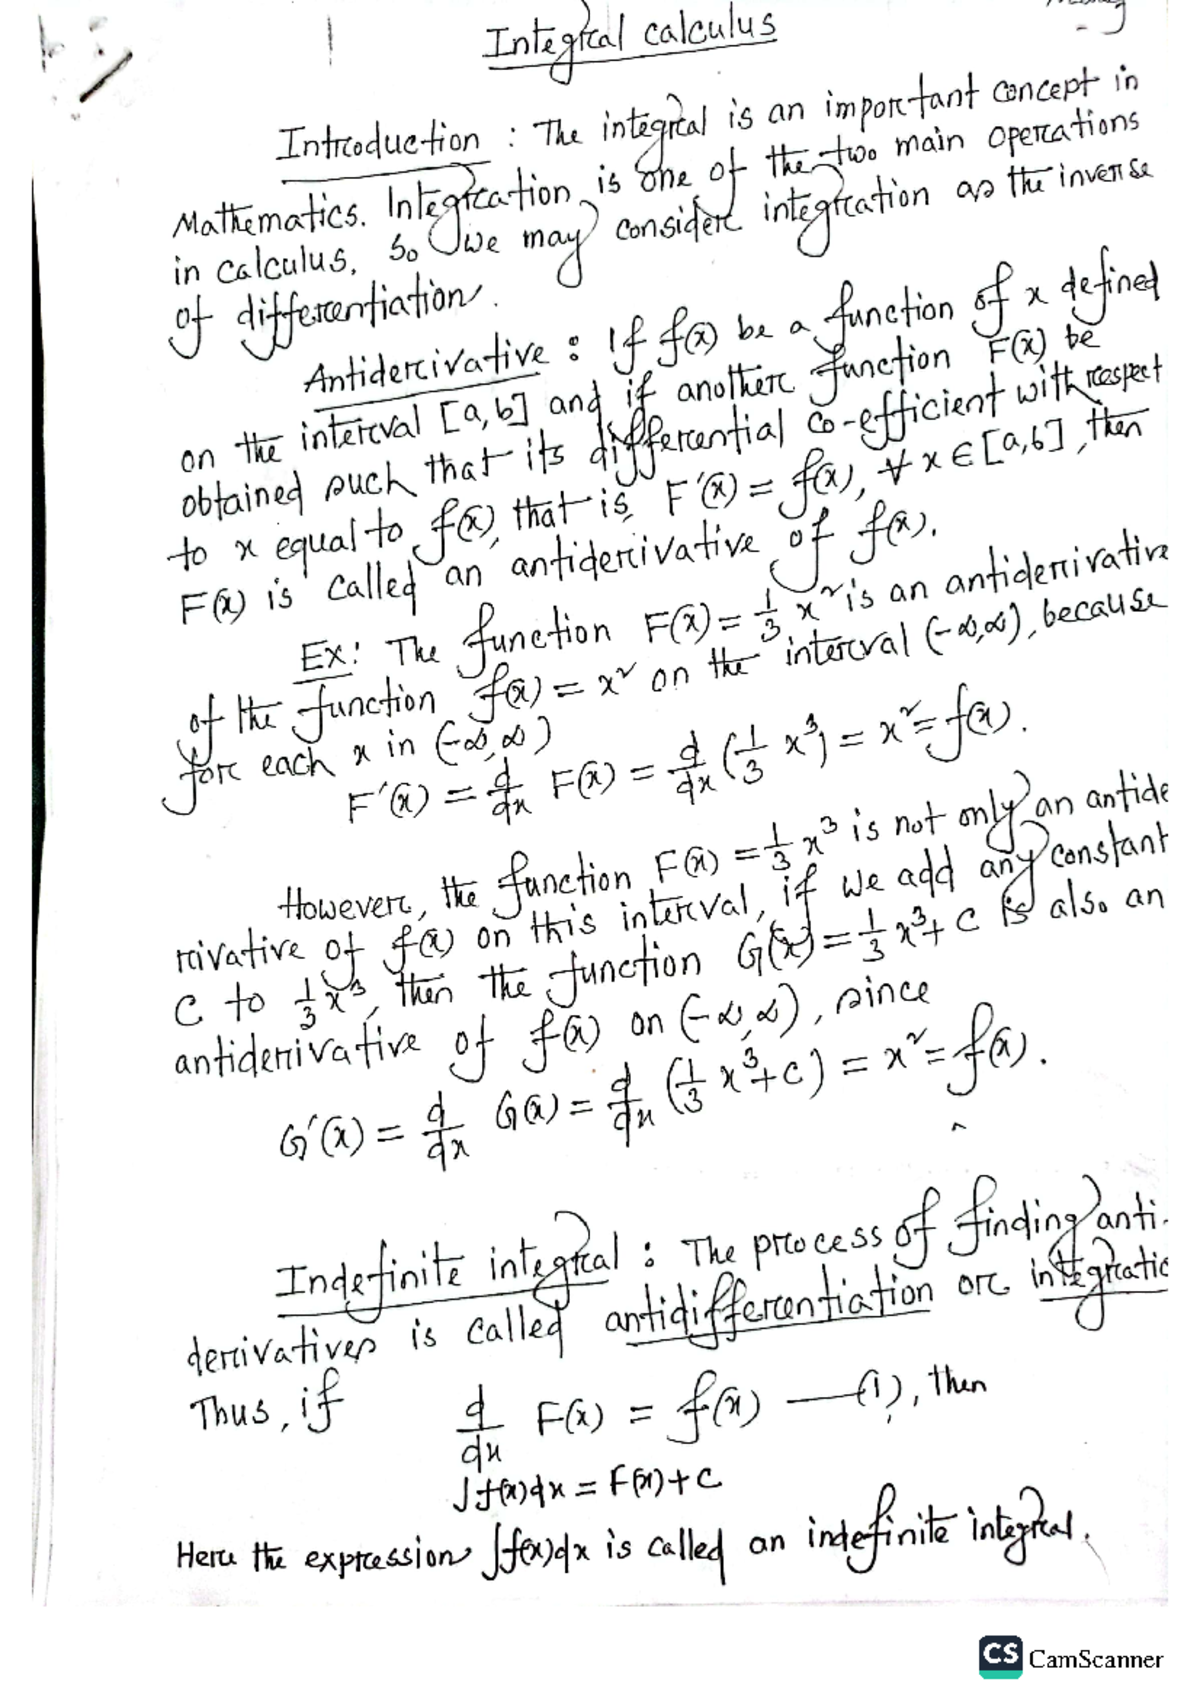 Integral calculus
Introduction : The integral is an important concept in
Mathematics. Integration is one of the two main operations
in calculus. So we may consider integration as the inverse
of differentiation.
Antiderivative : If f(x) be a function of x defined
on the interval [a,b] and if another function F(x) be
obtained such that its differential co-efficient with respect
to x equal to f(x), that is, F'(x) = f(x), ∀ x ∈ [a,b], then
F(x) is called an antiderivative of f(x).
Ex: The function F(x) = 1/3 x² is an antiderivative
of the function f(x) = x² on the interval (-∞,∞), because
for each x in (-∞,∞)
F'(x) = d/dx F(x) = d/dx (1/3 x³) = x² = f(x).
However, the function F(x) = 1/3 x³ is not only an antide
rivative of f(x) on this interval, if we add any constant
C to 1/3 x³, then the function G(x) = 1/3 x³ + C is also an
antiderivative of f(x) on (-∞,∞), since
G'(x) = d/dx G(x) = d/dx (1/3 x³+c) = x² = f(x).
Indefinite integral : The process of finding anti-
derivatives is called antidifferentiation or integratio
Thus, if d/dx F(x) = f(x) —(1), then
∫f(x)dx = F(x)+C
Here the expression ∫f(x)dx is called an indefinite integral.
CS CamScanner